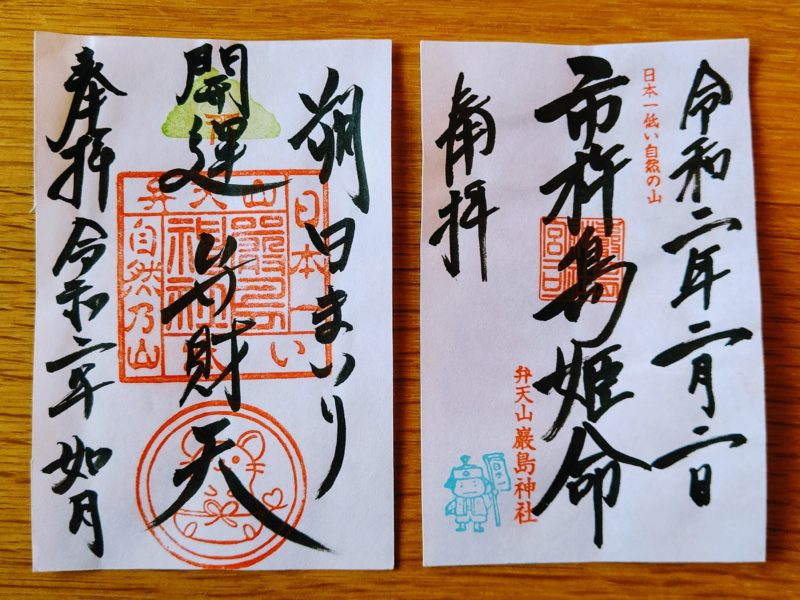 朔日まいり
開運 弁財天
奉拝 令和二年 如月
弁天山
日本一
自然乃山
令和二年二月二日
日本一低い自然の山
市杵島姫命
弁天山 巌島神社
奉拝
日本一